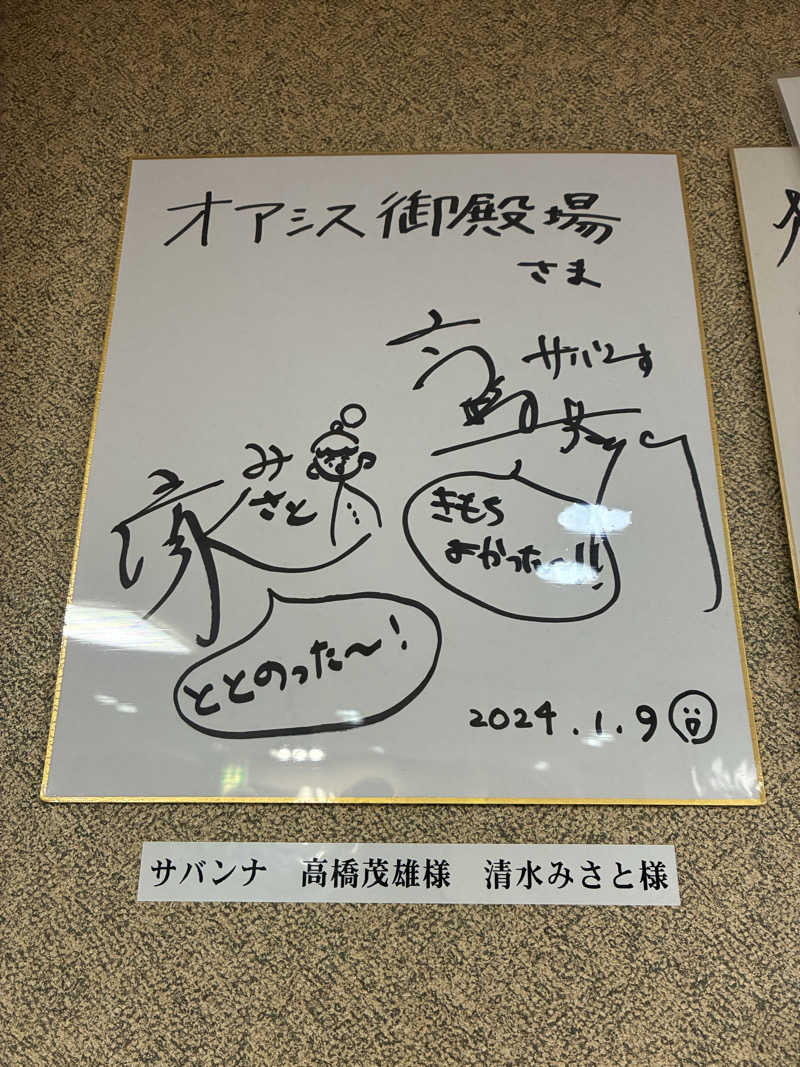 オアシス御殿場
さま
サバンナ
高橋
みさと
きもち
よかったー!!
ととのった〜!
2024.1.9
サバンナ 高橋茂雄様 清水みさと様